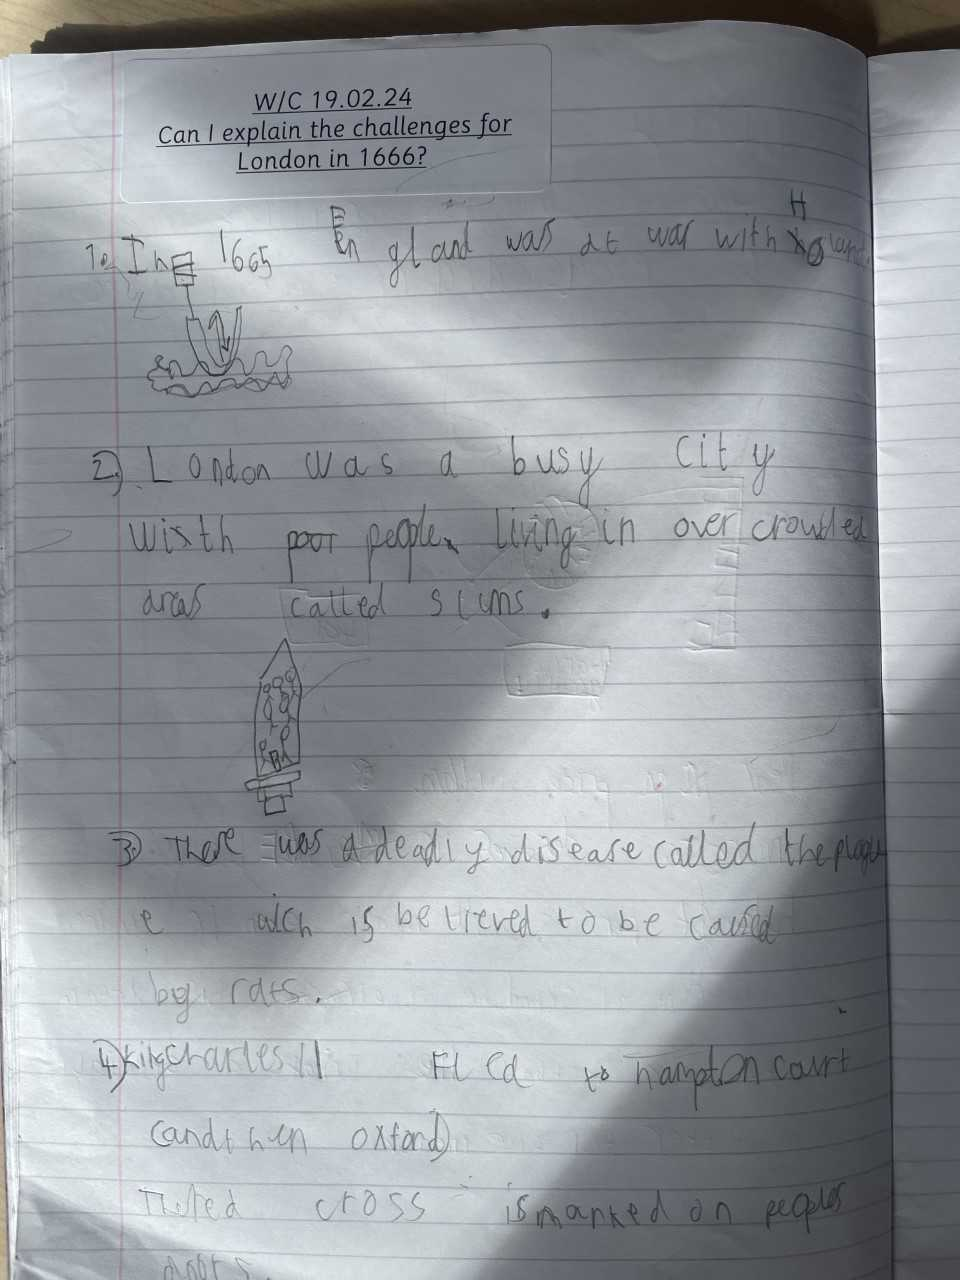 W/C 19.02.24
Can I explain the challenges for
London in 1666?
1. In 1665 England was at war with Holand
2) London was a busy city
wisth poor people living in over crowded
areas called slums.
3) There was a deadly disease called the plagu
e wich is believed to be caused
by rats.
4) King Charles II Fled to hampton court
(and then oxford)
The red cross is marked on peoples
doors.